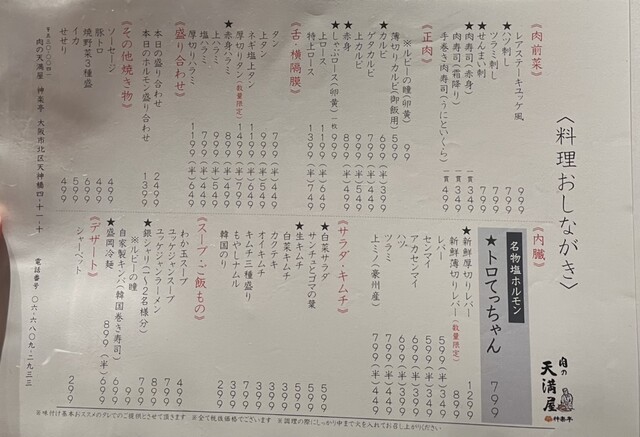 〈料理おしながき〉
肉の天満屋
神楽亭
《肉前菜》
レアステーキユッケ風 999
★ハツ刺し 799
ツラミ刺し 799
★せんまい刺 799
★肉寿司(赤身) 一貫349
肉寿司(霜降り) 一貫349
手巻き肉寿司(うにといくら) 一貫499
《正肉》
※ルビーの瞳(卵黄) 99
薄切りカルビ(御飯用) 599
★カルビ 699(半)399
ゲタカルビ 749
上カルビ
★赤身 899(半)499
★しゃぶロース(卵黄) 一枚999
上ロース 1199(半)649
特上ロース 1399(半)749
《舌・横隔膜》
タン 799(半)449
ネギ塩上タン
上タン 999(半)549
厚切りタン(数量限定) 1499(半)799
★赤身ハラミ 899(半)499
上ハラミ 999(半)549
塩ハラミ 799(半)449
厚切りハラミ 1199(半)649
《盛り合わせ》
本日の盛り合わせ 2499
本日のホルモン盛り合わせ 1399
《その他焼き物》
ソーセージ 499
豚トロ 499
焼野菜3種盛 699
イカ 599
せせり 499
肉の天満屋 神楽亭 大阪市北区天神橋四-十一-十 電話番号 〇六-六八〇九-二九三三
《内臓》
名物塩ホルモン
★トロてっちゃん 799
★新鮮厚切りレバー 1299
新鮮薄切りレバー(数量限定) 899
レバー 599(半)349
センマイ 599(半)349
アカセンマイ 599(半)349
ハツ 699(半)399
ツラミ 799(半)449
上ミノ(豪州産) 799(半)449
《サラダ・キムチ》
★白菜サラダ 599
サンチュとゴマの葉 599
★生キムチ
白菜キムチ 399
オイキムチ 399
カクテキ 399
キムチ三種盛り 799
もやしナムル 399
韓国のり 299
《スープ・ご飯もの》
わか玉スープ 499
ユッケジャンスープ 799
ユッケジャンラーメン 899
★銀シャリ(1~2名様分)
※ルビーの瞳
自家製キンパ(韓国巻き寿司)
★盛岡冷麺 899(半)699
《デザート》
シャーベット 299
※味付け基本おススメのタレでのご提供とさせて頂きます ※全て税抜価格でございます ※調理の際にしっかり中まで火を入れてお召し上がりください